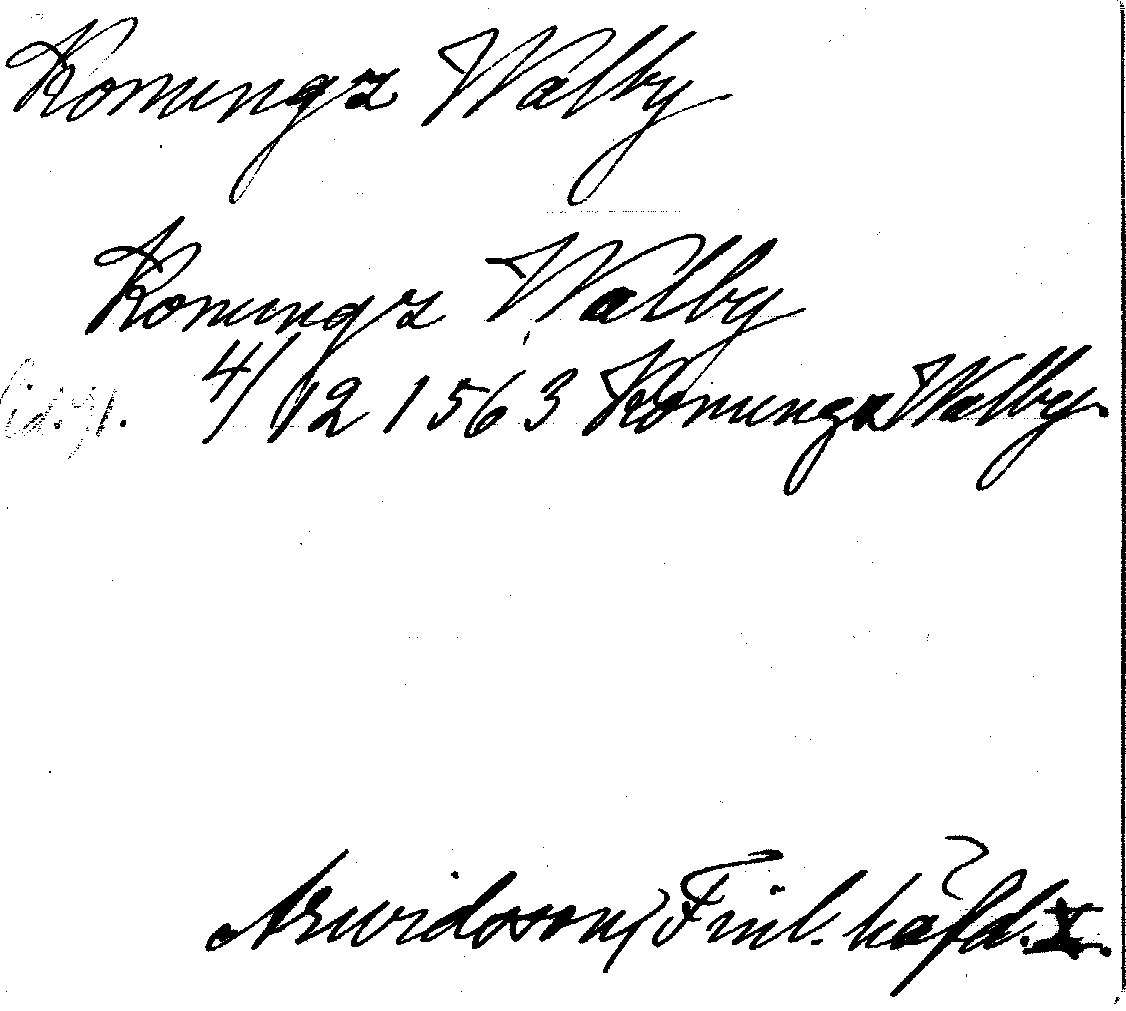 Konungz Walby
Konungz Walby
4/12 1563 Konungz Walby
Arwidsson, Finl. häfd. X.